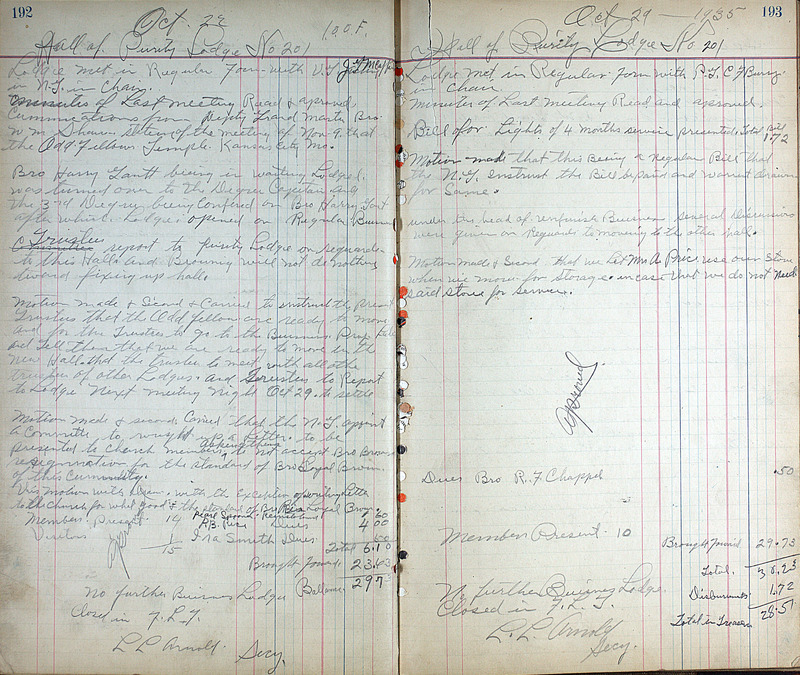 192
Oct. 22
I.O.O.F.
Hall of Purity Lodge No 201
Lodge met in Regular Form with V.G.
in N.G. in Chair.
Minutes of Last meeting Read & aproved
from Deputy Grand Master Bro
of the meeting of Nov 9. that
the Odd Fellows Temple. Kansas City Mo.
Bro Harry Gantt being in waiting Lodged.
was turned over to the Degree Captain and
the 3rd Degree being Confered on Bro Harry Gantt
after which Lodge opened on Regular Business
Trustees
Committee report to Purity Lodge on reguards
to this Hall. and Browning will not do nothing
toward fixing up hall.
Motion made & Second & Carried to instruct the present
Trustees that the Odd fellows are ready to move
and for the Trustees to go to the Business
and Tell them that we are ready to move in the
New Hall. and the trustees to meet with all othe
trustees of other Lodges. and Trustees to Report
to Lodge Next meeting Night Oct 29. to settle
Motion made & second. Caried that the N.G. appoint
a Committe to wright a Letter. to be
presented to Church members to not accept Bro
resignation for the standard of Bro Loyal
of this Community.
This motion with Drawn. with the Exception of writing letter
to the church for what good & the standard of Bro Loyal
Members Present 14
Visitors 1
15
.60
R.B. Dues 4 00
Ira Smith Dues
Total 6.10
Brought Forward 23.63
Balance 29 73
No further Business Lodge
Closed in F. L. T.
L L Arnold Secy.
193
Oct 29 — 1935
Hall of Purity Lodge No 201
Lodge met in Regular form with P.G. C F
in Chair.
Minutes of Last meeting Read and aproved.
Bill for Lights of 4 months service presented. Total Bill
1.72
Motion made that this Being a Regular Bill that
the N.G. instruct the Bill be paid and warrent drawn
for Same.
under the head of unfinish Business several discussions
were given on reguards to moving to the other hall.
Motion made & Second that we let Mrs A Price use our Stove
when we move. for storage. in case that we do not need
said stove for service.
Aproved
Dues Bro R. F Chappel .50
Members Present 10
Brought Forward 29.73
Total. 30.23
Disbursments 1.72
Total in Treasury 28.51
No further Business Lodge.
Closed in F. L. T.
L. L. Arnold
Secy.